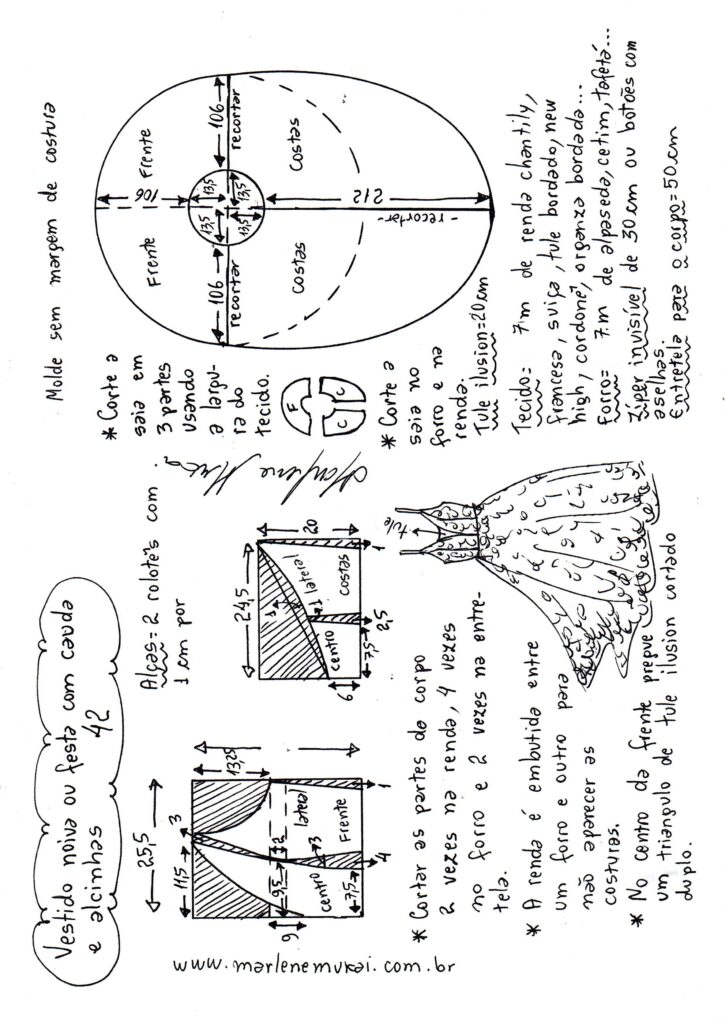 Vestido noiva ou festa com cauda
e alcinhas 42
25,5
11,5
3
13,25
9,5
2
9
centro
lateral
3
Frente
7,5
4
1
www.marlenemukai.com.br
Alças= 2 rolotês com
1 cm por
24,5
20
1
1
lateral
centro
costas
6
7,5
2,5
1
* Cortar as partes do corpo
2 vezes na renda, 4 vezes
no forro e 2 vezes na entre-
tela.
* A renda é embutida entre
um forro e outro para
não aparecer as
costuras.
* No centro da frente prepue
um triangulo de tule ilusion cortado
duplo.
tule
Molde sem margem de costura
* Corte a
saia em
3 partes
usando
a largu-
ra do
tecido.
F
C
C
* Corte a
saia no
forro e na
renda.
Tule ilusion=20cm
Frente
Frente
106
106
106
13,5
13,5
13,5
13,5
recortar
recortar
costas
costas
212
-recortar-
Tecido= 7m de renda chantily,
francesa, suiça, tule bordado, new
high, cordonê, organza bordada...
Forro= 7m de alpaseda, cetim, tafetá...
Zíper invisível de 30cm ou botões com
aselhas.
Entretela para o corpo=50cm